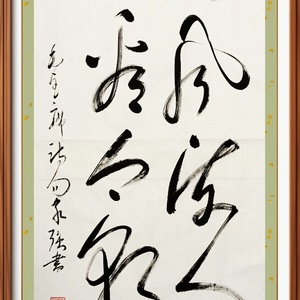 风流人
看今朝
毛主席诗句 强书